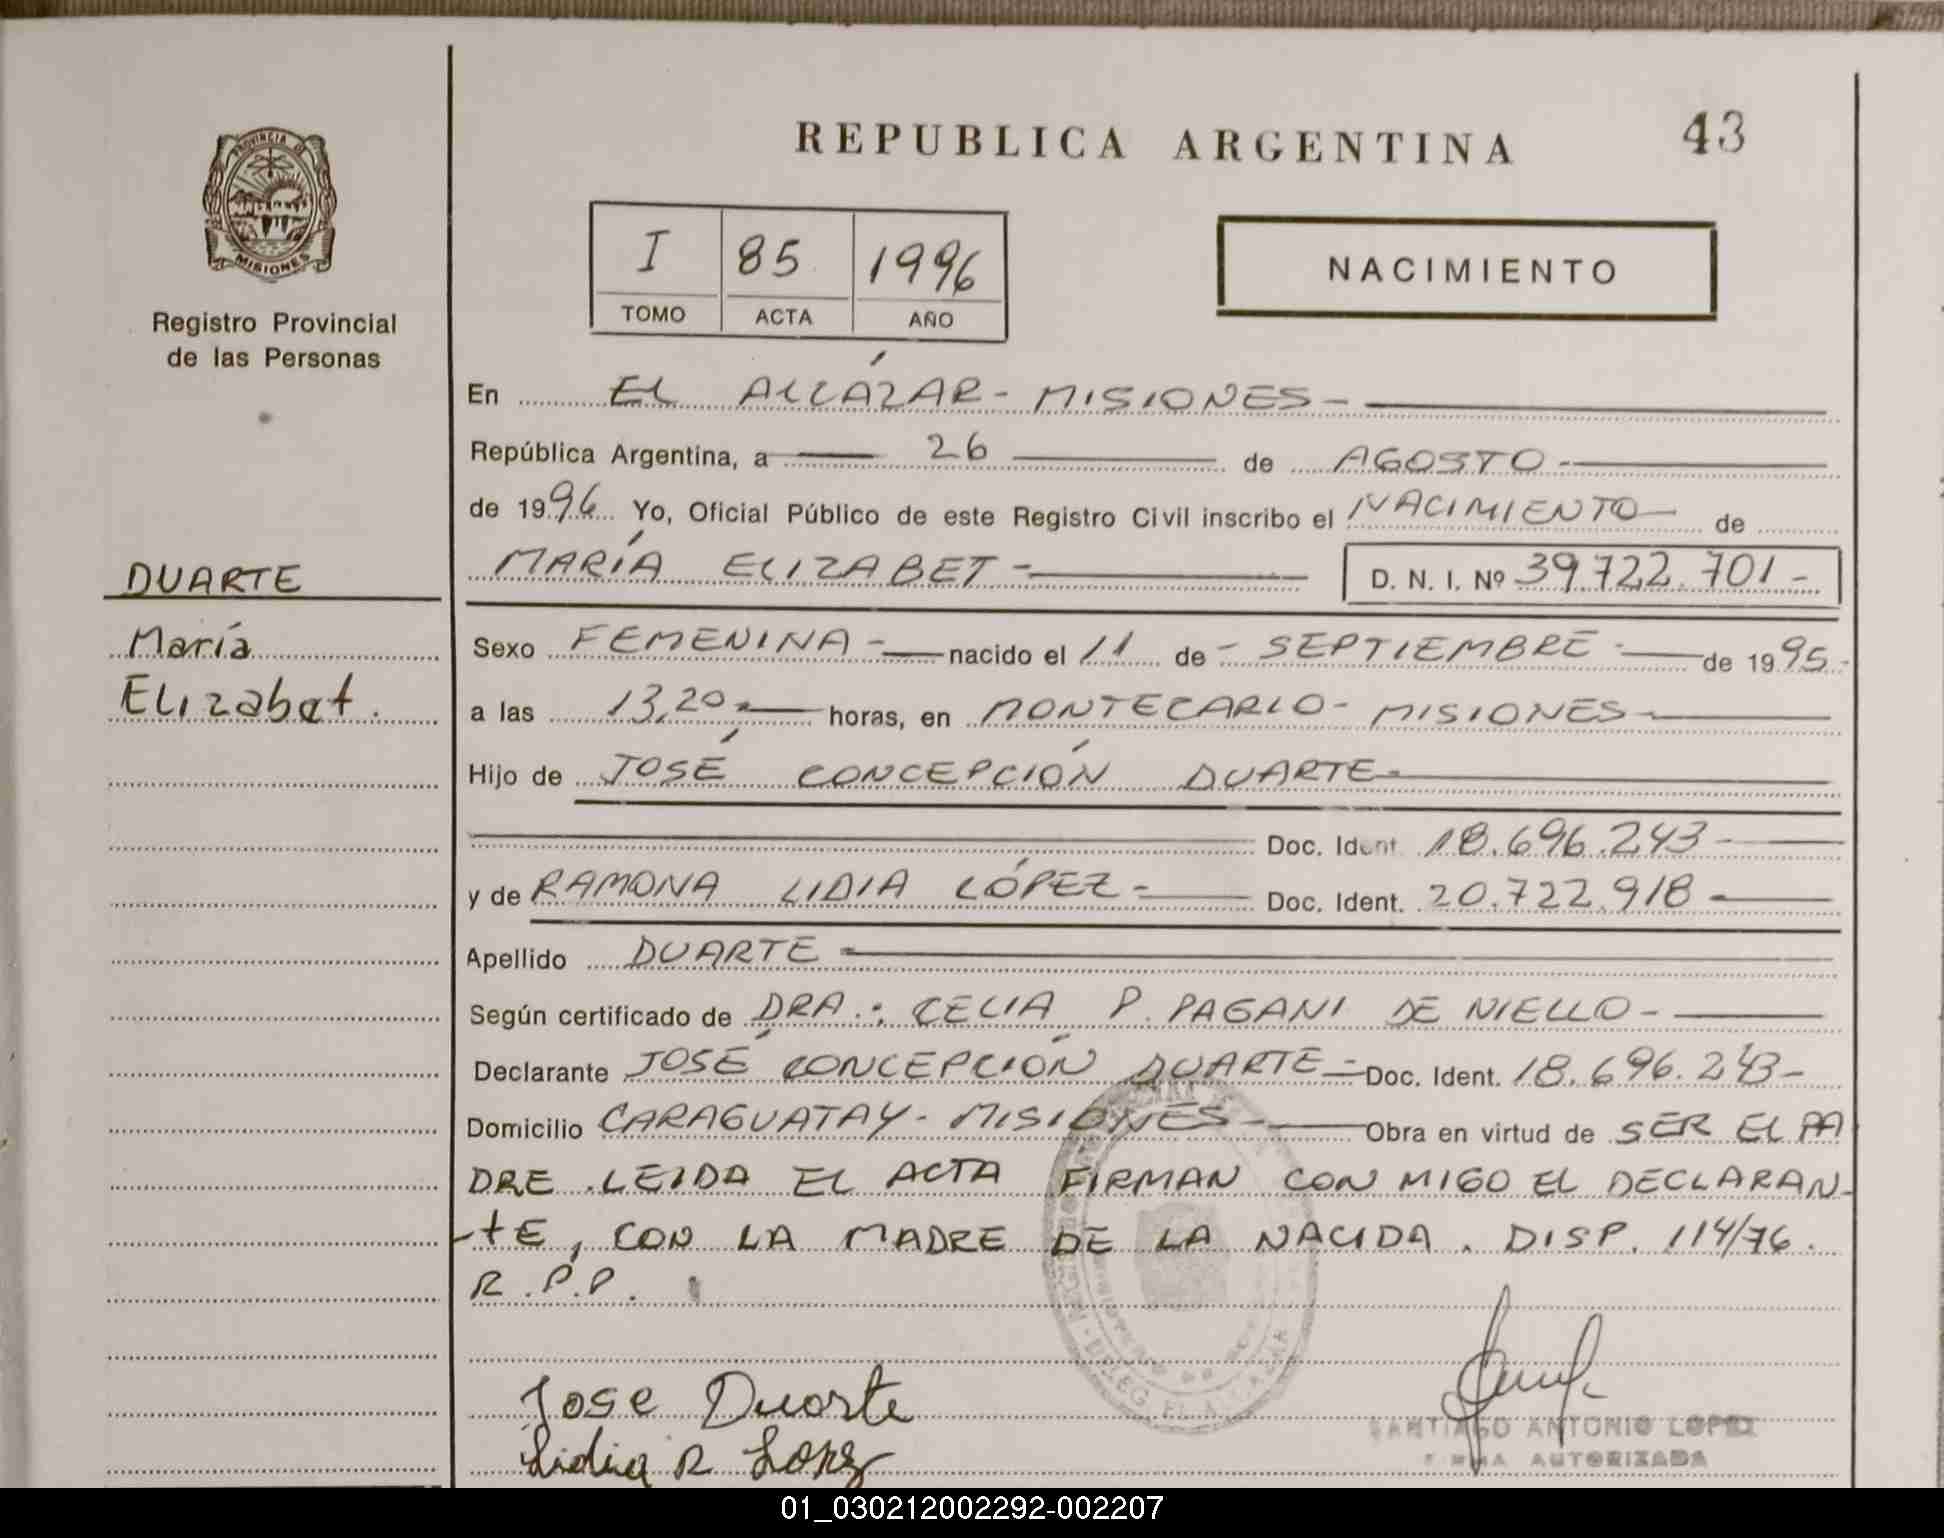 REPUBLICA ARGENTINA
43
PROVINCIA DE
MISIONES
Registro Provincial
de las Personas
I 85 1996
TOMO ACTA AÑO
NACIMIENTO
En EL ALCÁZAR - MISIONES -
República Argentina, a 26 de AGOSTO -
de 1996 Yo, Oficial Público de este Registro Civil inscribo el NACIMIENTO - de
MARÍA ELIZABET - D. N. I. Nº 39.722.701 -
DUARTE
María
Elizabet.
Sexo FEMENINA - nacido el 11 de - SEPTIEMBRE - de 1995 -
a las 13,20 - horas, en MONTECARLO - MISIONES -
Hijo de JOSÉ CONCEPCIÓN DUARTE -
Doc. Ident. 18.696.243 -
y de RAMONA LIDIA LÓPEZ - Doc. Ident. 20.722.918 -
Apellido DUARTE -
Según certificado de DRA.: CELIA P. PAGANI DE NIELLO -
Declarante JOSÉ CONCEPCIÓN DUARTE - Doc. Ident. 18.696.243 -
Domicilio CARAGUATAY - MISIONES - Obra en virtud de SER EL PA
DRE. LEIDA EL ACTA FIRMAN CON MIGO EL DECLARAN-
-tE, CON LA MADRE DE LA NACIDA. DISP. 114/76.
R.P.P.
DELEG. EL ALCAZAR
Jose Duarte
Lidia R Lopez
SANTIAGO ANTONIO LOPEZ
FIRMA AUTORIZADA
01_030212002292-002207